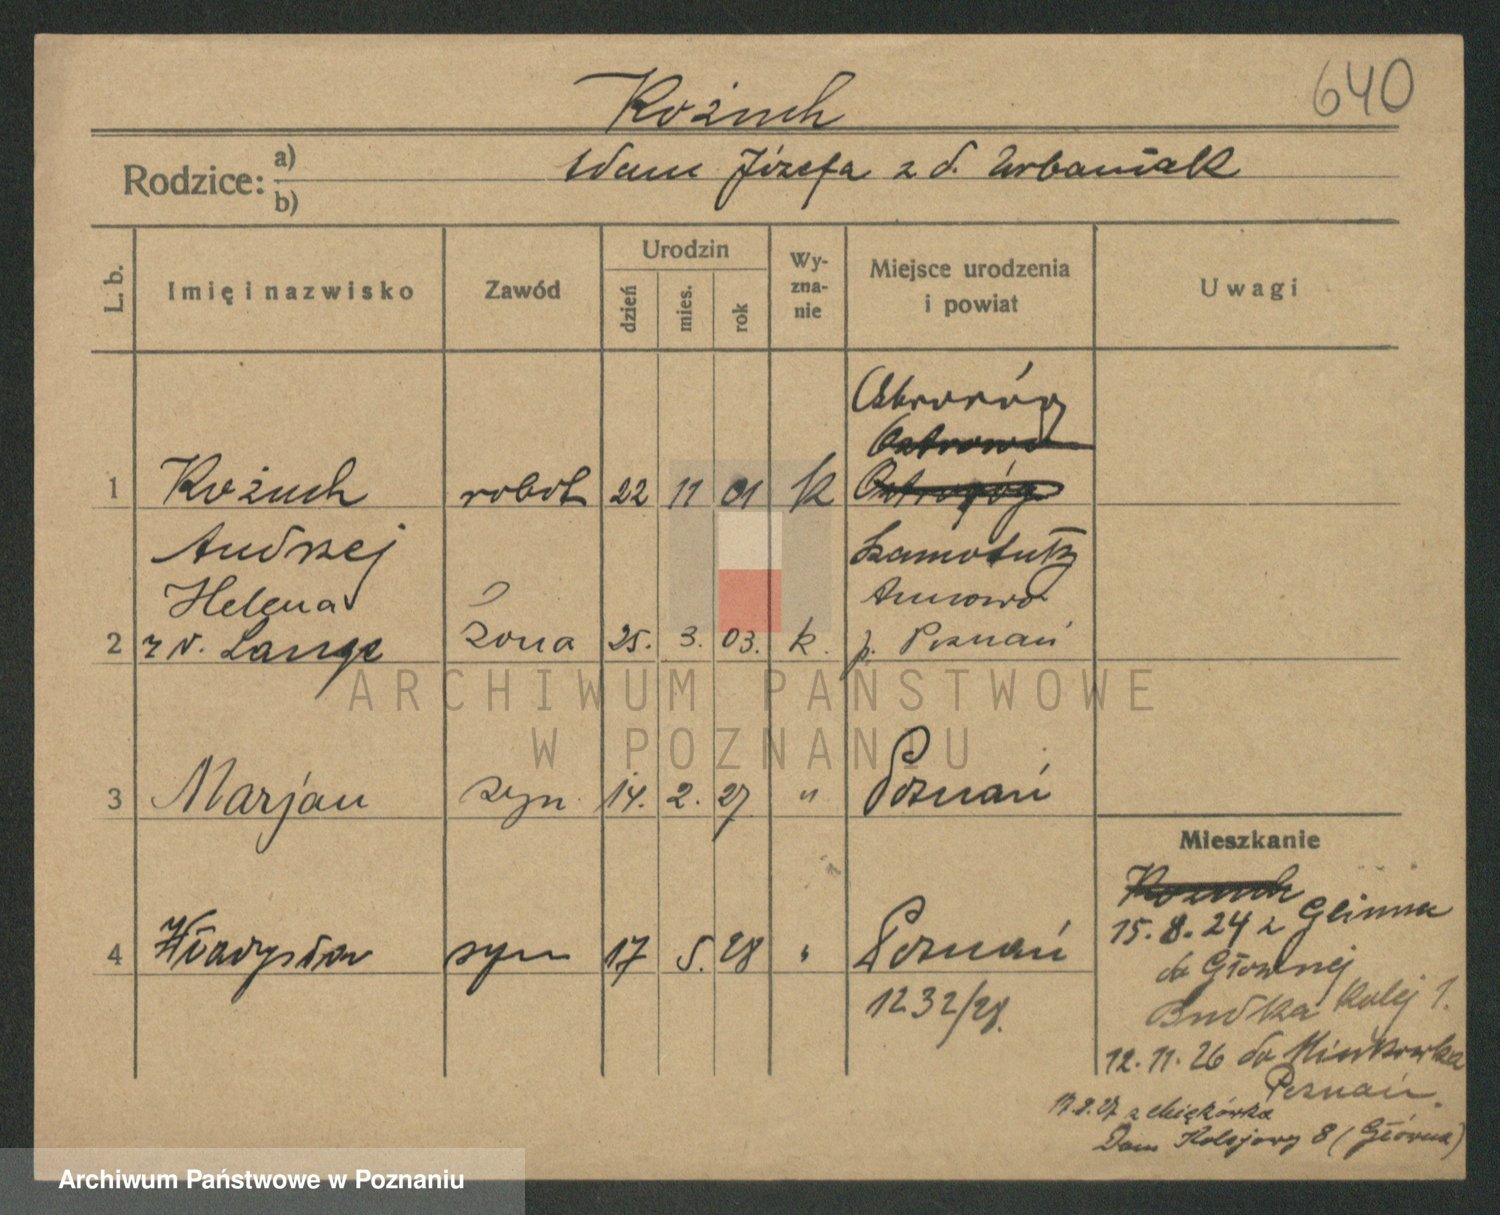 640
Kożuch
Rodzice: a) b)
Adam Józefa z d. Urbaniak
L. b.
Imię i nazwisko
Zawód
Urodzin
dzień
mies.
rok
Wy-
zna-
nie
Miejsce urodzenia
i powiat
Uwagi
Obroróg
Ostrowo
Ostroróg
1 Kożuch robot 22 11 01 k
Andrzej Szamotuły
Helena Annowo
2 z d. Lange żona 25. 3. 03. k. p. Poznań
3 Marjan syn 14. 2. 27 " Poznań
4 Władysław syn 17 5. 28 " Poznań
1232/28.
Mieszkanie
Kożuch
15.8.24 z Glinna
do Głównej
Budka Kolej 1.
12.11.26 do
Poznań.
17.8.27 z
Dom Kolejowy 8 (Główna)
ARCHIWUM PAŃSTWOWE
W POZNANIU
Archiwum Państwowe w Poznaniu